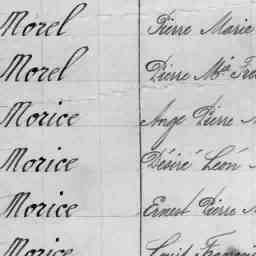 Morel Pierre Marie
Morel Pierre Mie
Morice Ange Pierre
Morice Désiré Léon
Morice Ernest Pierre
Morice Louis François